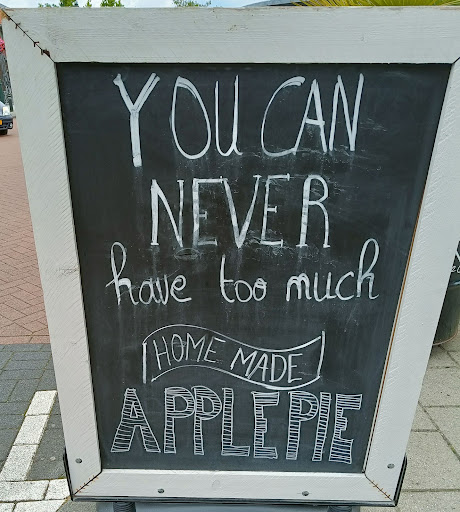 YOU CAN
NEVER
have too much
HOME MADE
APPLE PIE